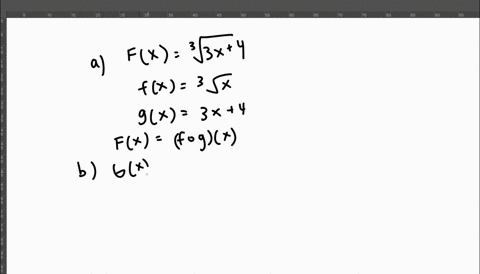 a) F(x) = ∛(3x+4)
f(x) = ∛x
g(x) = 3x+4
F(x) = (f∘g)(x)
b) G(x)